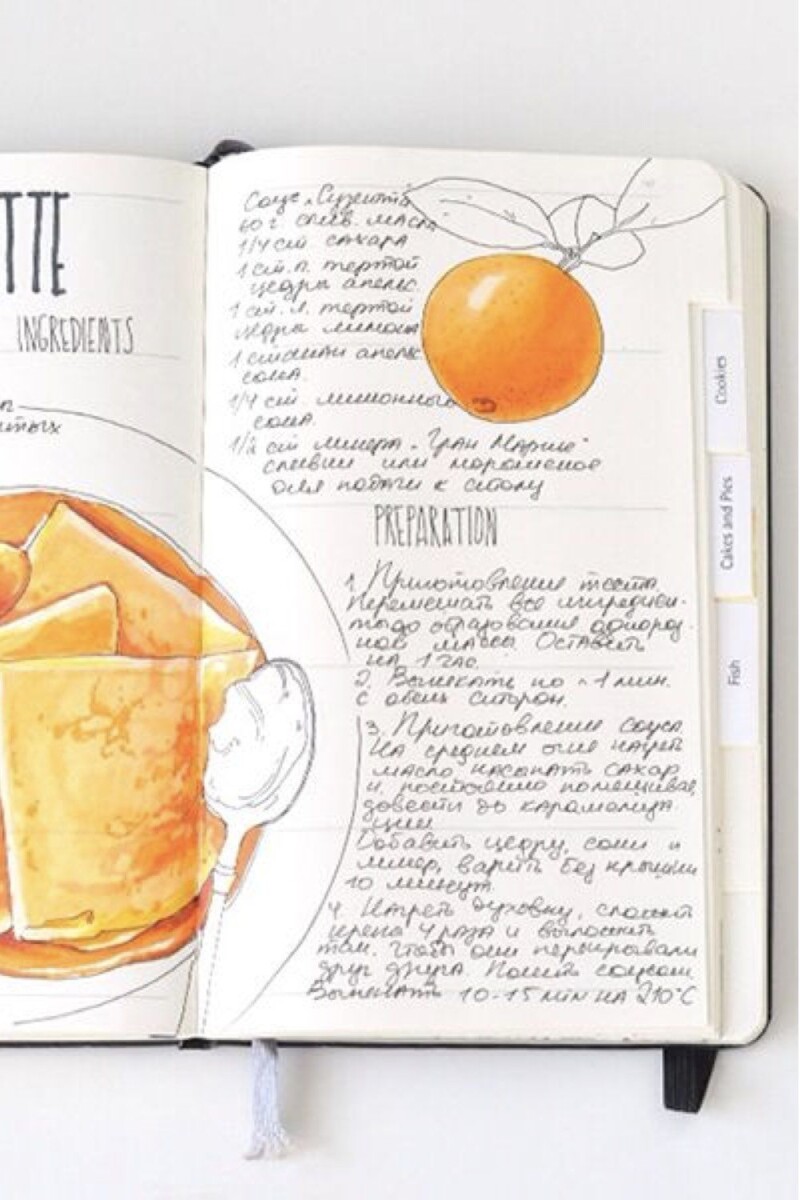 TTE
INGREDIENTS
Соус „Сузетта
60 г слив. масла
1/4 ст. сахара
1 ст.л. тертой
цедры апельс.
1 ст. л. тертой
цедры лимона
1 стакан апельс
сока.
1/4 ст. лимонного
сока.
1/2 ст ликера „Гран Марнье"
сливки или мороженое
для подачи к столу
PREPARATION
1. Приготовление теста.
Перемешать все ингредиен-
ты до образования однород-
ной массы. Оставить
на 1 час.
2. Выпекать по ~1 мин.
с обеих сторон.
3. Приготовление соуса.
На среднем огне нагреть
масло насыпать сахар
и, постоянно помешивая,
довести до карамелиза
ции
Добавить цедру, соки и
ликер, варить без крышки
10 минут
4 Нагреть духовку, сложить
крепа 4 раза и выложить
так, чтобы они перекрывали
друг друга. Полить соусом
Выпекать 10-15 min на 210°C
Cookies
Cakes and Pies
Fish